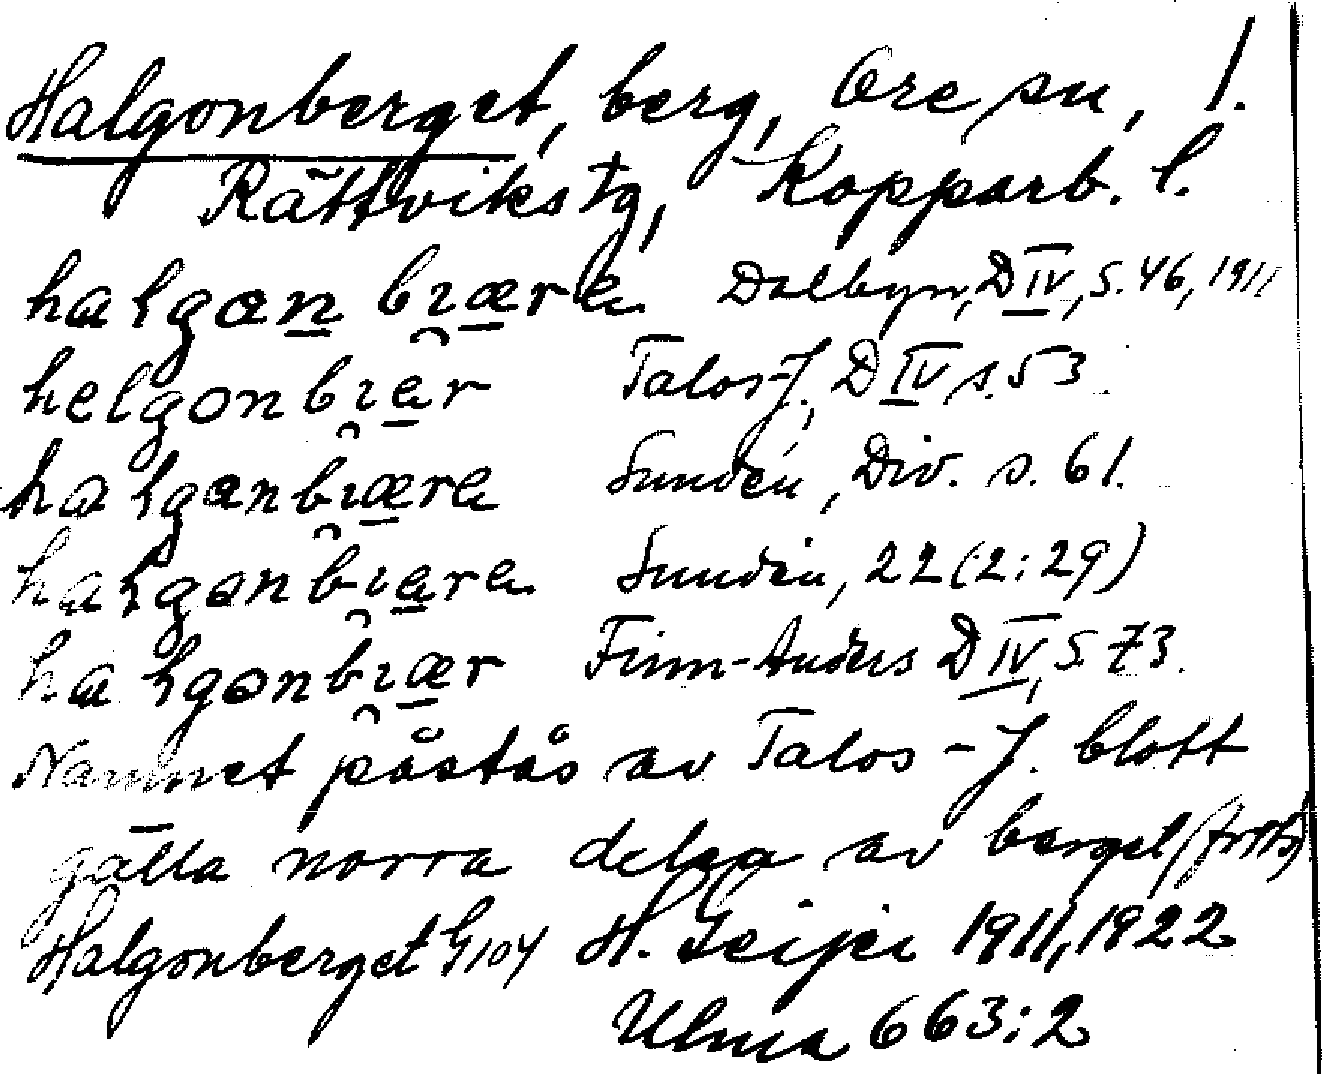 Halgonberget, berg, Ore sn, 1.
Rättviks tg, Kopparb. l.
halgon bıære Dalbyn, D IV, s. 46, 1911
helgonbıer Talos-J., D IV s. 53.
halgonbıære Sundén, Div. s. 61.
halgonbıere Sundén, 22 (2:29)
halgonbıær Finn-Anders D IV, s. 73.
Namnet påstås av Talos-J. blott
gälla norra delen av berget
Halgonberget G104 H. Geijer 1911, 1922
Ulma 663:2